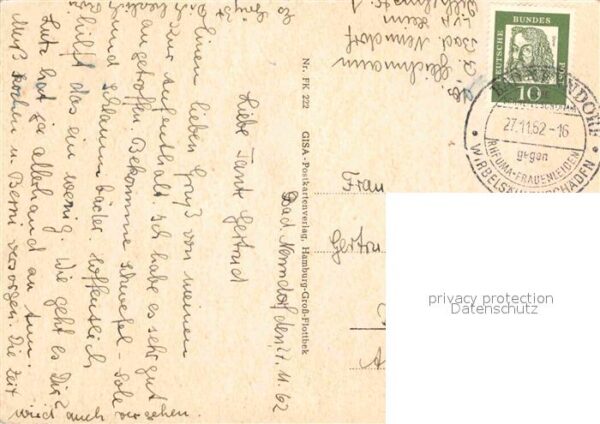 Bad Nenndorf den 27.11.62
Liebe Tante Gertrud
Einen lieben Gruß von meinem
Kur Aufenthalt. Ich habe es sehr gut
angetroffen. Bekomme Schwefel - Sole
und Schlammbäder. Hoffentlich
hilft das ein wenig. Wie geht es Dir?
Lutz hat ja allerhand zu tun.
Muß kochen u. Berni versorgen. Die Zeit
wird auch vergehen.
Es grüßt
Dich herzlich
Nr. FK 222 GISA-Postkartenverlag, Hamburg-Groß-Flottbek
Bad Nenndorf
Frau
Gertru
DEUTSCHE BUNDESPOST
10
BAD NENNDORF
27.11.62-16
gegen
RHEUMA-FRAUENLEIDEN
WIRBELSÄULENSCHÄDEN
privacy protection
Datenschutz